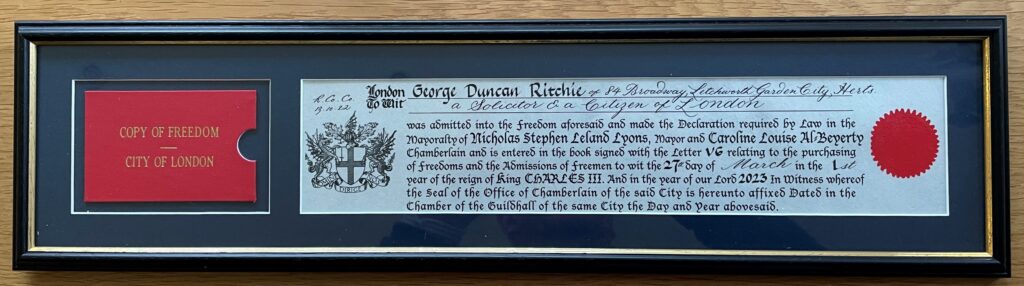 COPY OF FREEDOM
CITY OF LONDON
R. Co. Co.
13.12.22
London
To Wit
George Duncan Ritchie of 84 Broadway, Letchworth Garden City, Herts.
a Solicitor & a Citizen of London
was admitted into the Freedom aforesaid and made the Declaration required by Law in the
Mayoralty of Nicholas Stephen Leland Lyons, Mayor and Caroline Louise Al-Beyerty
Chamberlain and is entered in the book signed with the Letter VG relating to the purchasing
of Freedoms and the Admissions of Freemen to wit the 27th day of March in the 1st
year of the reign of King CHARLES III. And in the year of our Lord 2023 In Witness whereof
the Seal of the Office of Chamberlain of the said City is hereunto affixed Dated in the
Chamber of the Guildhall of the same City the Day and Year abovesaid.
DIRIGE